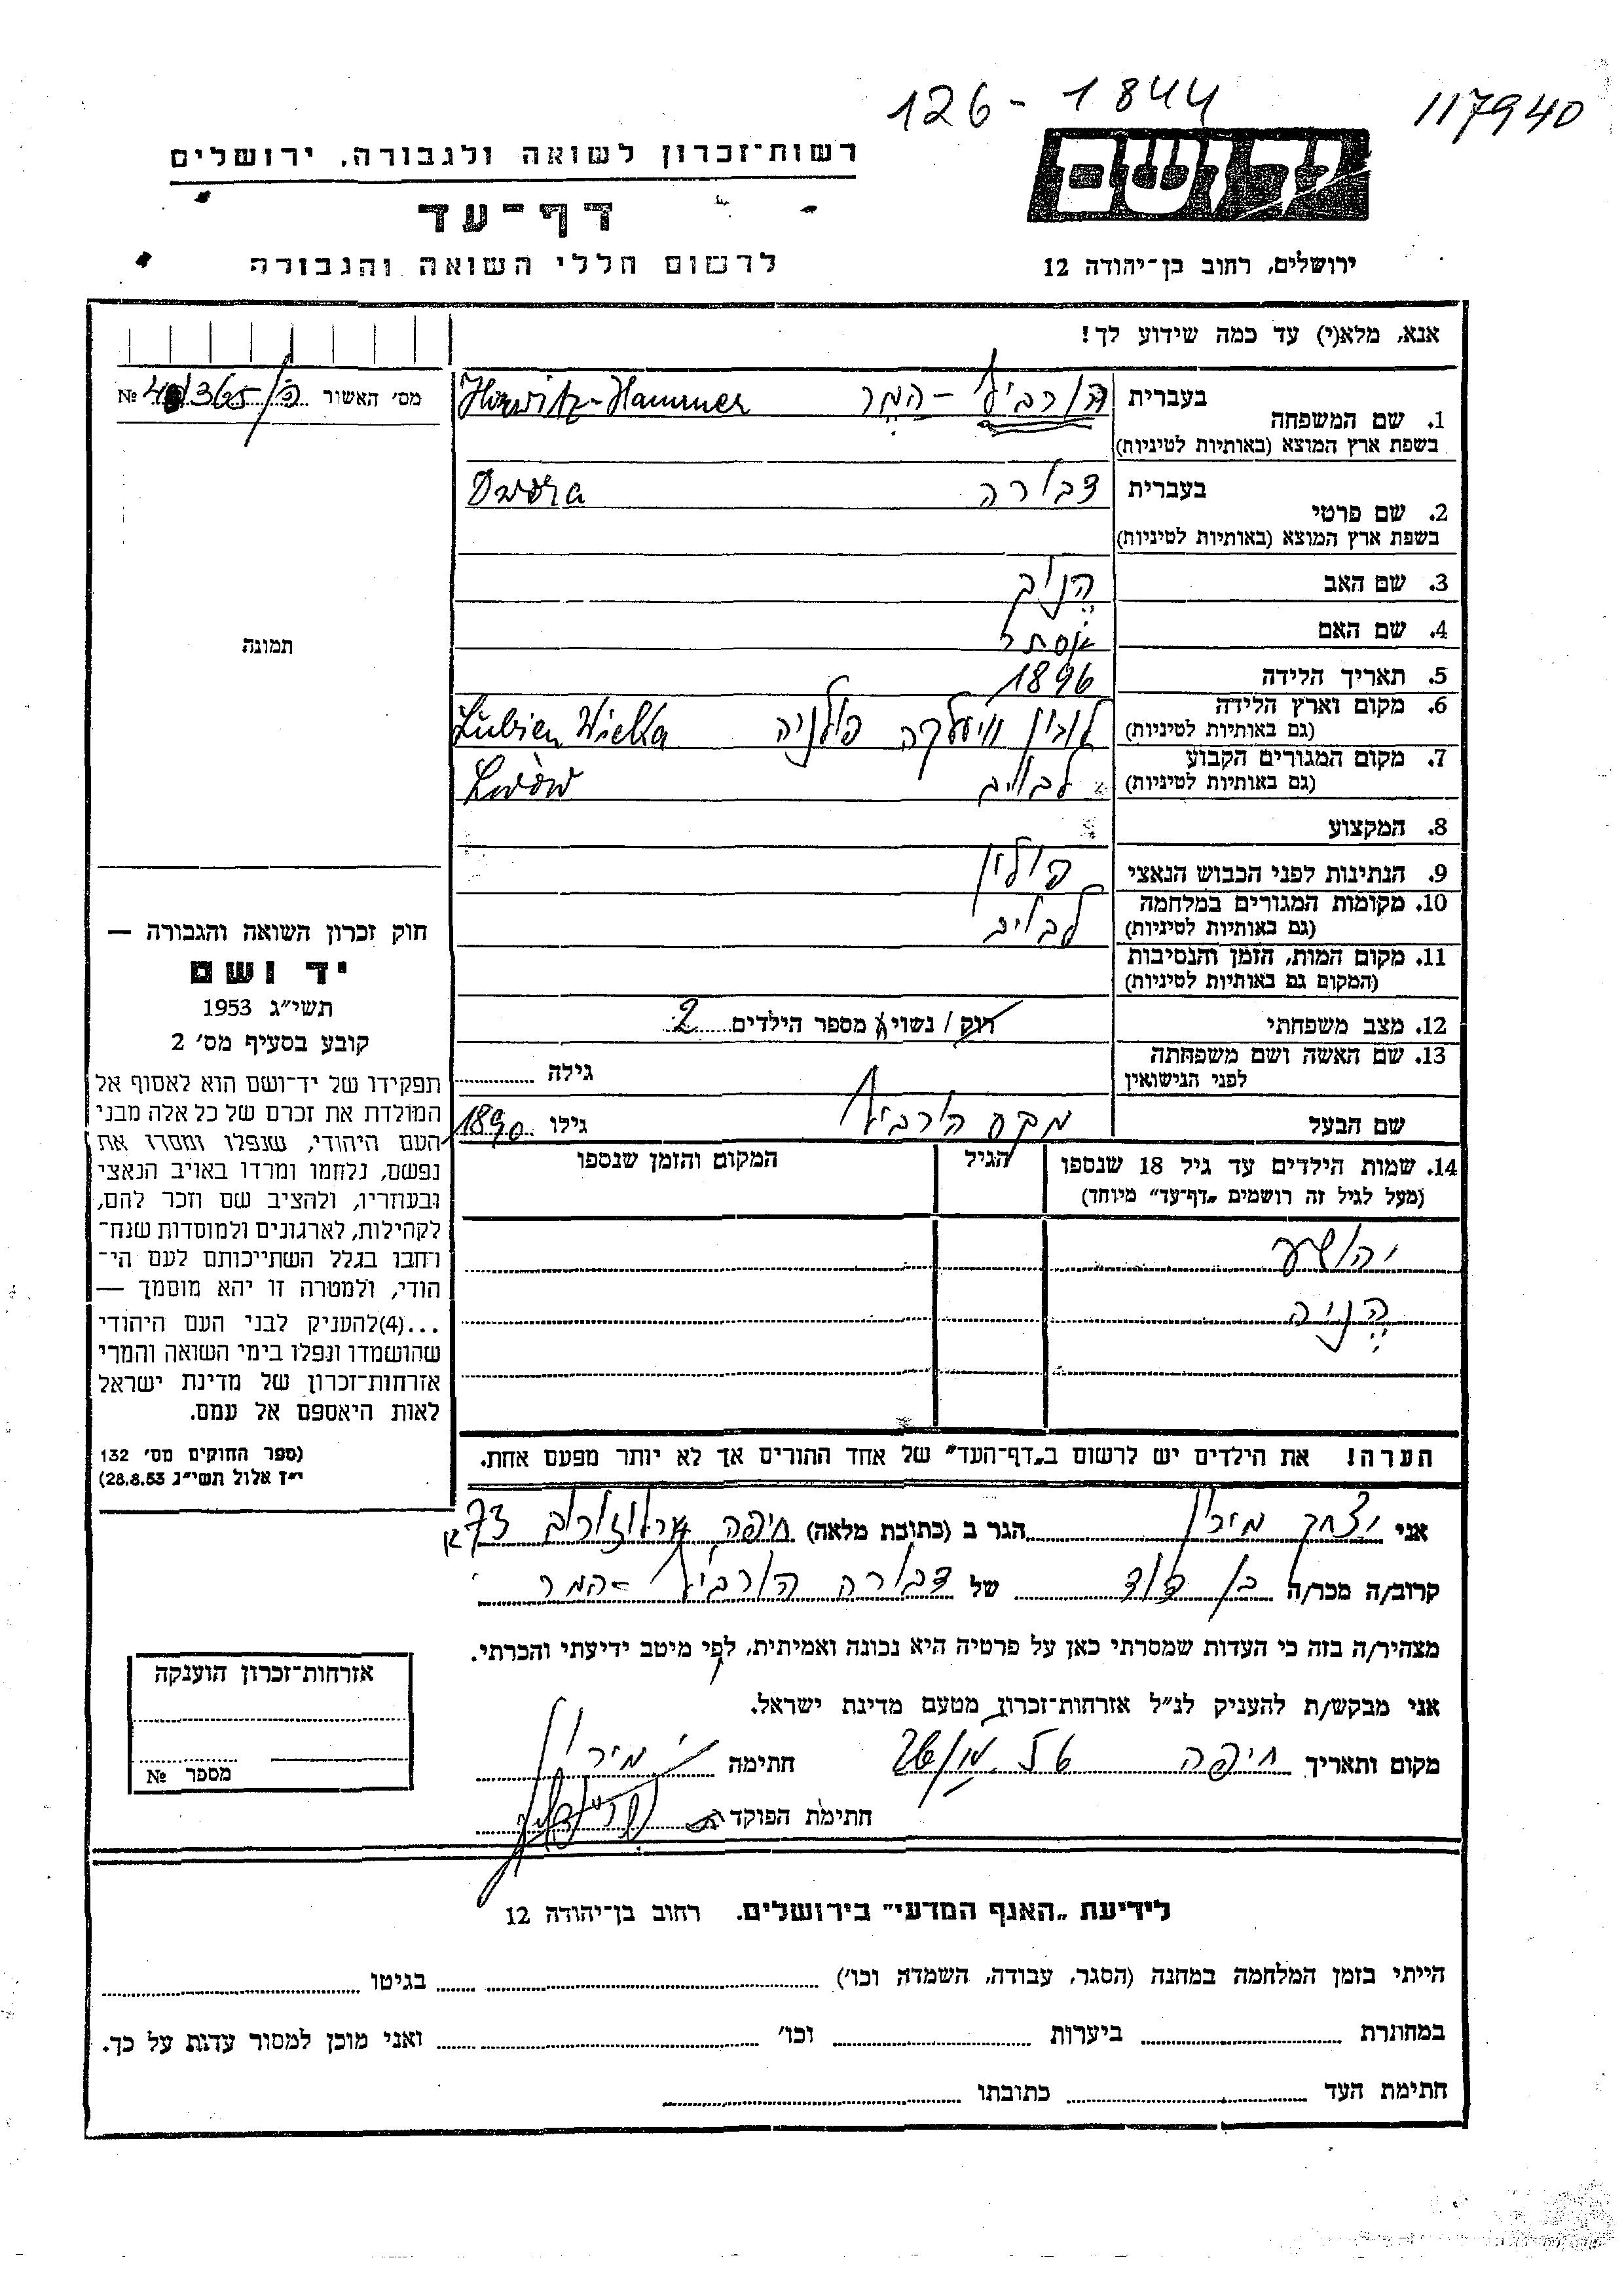 126-1844
117940
רשות־זכרון לשואה ולגבורה, ירושלים
יד ושם
דף־עד
לרשום חללי השואה והגבורה
ירושלים, רחוב בן־יהודה 12
אנא, מלא(י) עד כמה שידוע לך!
מס׳ האשור
№
1. שם המשפחה
בעברית הורביץ - המר Horwitz-Hammer
בשפת ארץ המוצא (באותיות לטיניות)
2. שם פרטי
בעברית דבורה Dwora
בשפת ארץ המוצא (באותיות לטיניות)
3. שם האב
4. שם האם אסתר
5. תאריך הלידה 1896
6. מקום וארץ הלידה לובין וויעלקה פולניה Lubien Wielka
(גם באותיות לטיניות)
7. מקום המגורים הקבוע לבוב Lwów
(גם באותיות לטיניות)
8. המקצוע
9. הנתינות לפני הכבוש הנאצי פולין
10. מקומות המגורים במלחמה לבוב
(גם באותיות לטיניות)
11. מקום המות, הזמן והנסיבות
(המקום גם באותיות לטיניות)
12. מצב משפחתי רוק / נשוי מספר הילדים 2
13. שם האשה ושם משפחתה
לפני הנישואין
גילה
שם הבעל מקס הורביץ גילו 1890
14. שמות הילדים עד גיל 18 שנספו
(מעל לגיל זה רושמים „דף־עד” מיוחד)
הגיל
המקום והזמן שנספו
יהושע
הניה
הערה! את הילדים יש לרשום ב„דף־העד” של אחד ההורים אך לא יותר מפעם אחת.
תמונה
חוק זכרון השואה והגבורה —
יד ושם
תשי״ג 1953
קובע בסעיף מס׳ 2
תפקידו של יד־ושם הוא לאסוף אל
המולדת את זכרם של כל אלה מבני
העם היהודי, שנפלו ומסרו את
נפשם, נלחמו ומרדו באויב הנאצי
ובעוזריו, ולהציב שם וזכר להם,
לקהילות, לארגונים ולמוסדות שנח־
רחבו בגלל השתייכותם לעם הי־
הודי, ולמטרה זו יהא מוסמך —
...(4)להעניק לבני העם היהודי
שהושמדו ונפלו בימי השואה והמרי
אזרחות־זכרון של מדינת ישראל
לאות היאספם אל עמם.
(ספר החוקים מס׳ 132
י״ז אלול תשי״ג 28.8.53)
אני יצחק מירון הגר ב (כתובת מלאה) חיפה ארלוזורוב 73
קרוב/ה מכר/ה בן דוד של דבורה הורביץ - המר
מצהיר/ה בזה כי העדות שמסרתי כאן על פרטיה היא נכונה ואמיתית, לפי מיטב ידיעתי והכרתי.
אני מבקש/ת להעניק לנ״ל אזרחות־זכרון מטעם מדינת ישראל.
מקום ותאריך חיפה חתימה
חתימת הפוקד
אזרחות־זכרון הוענקה
מספר №
לידיעת „האגף המדעי” בירושלים. רחוב בן־יהודה 12
הייתי בזמן המלחמה במחנה (הסגר, עבודה, השמדה וכו׳) בגיטו
במחתרת ביערות וכו׳ ואני מוכן למסור עדות על כך.
חתימת העד כתובתו